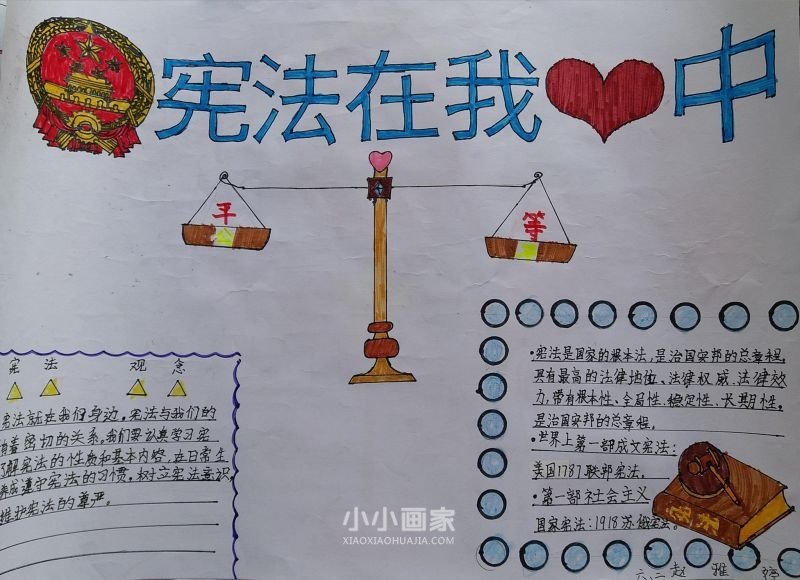 宪法在我中
平
等
公
宪法 观念
宪法就在我们身边,宪法与我们的
着密切的关系,我们要认真学习宪
了解宪法的性质和基本内容,在日常生
养成遵守宪法的习惯,树立宪法意识,
维护宪法的尊严。
·宪法是国家的根本法,是治国安邦的总章程,
具有最高的法律地位、法律权威、法律效
力,带有根本性、全局性、稳定性、长期性,
是治国安邦的总章程。
·世界上第一部成文宪法:
美国1787联邦宪法。
·第一部社会主义
国家宪法:1918苏俄宪法。
宪法
六、二 赵雅婷
小小画家
XIAOXIAOHUAJIA.COM